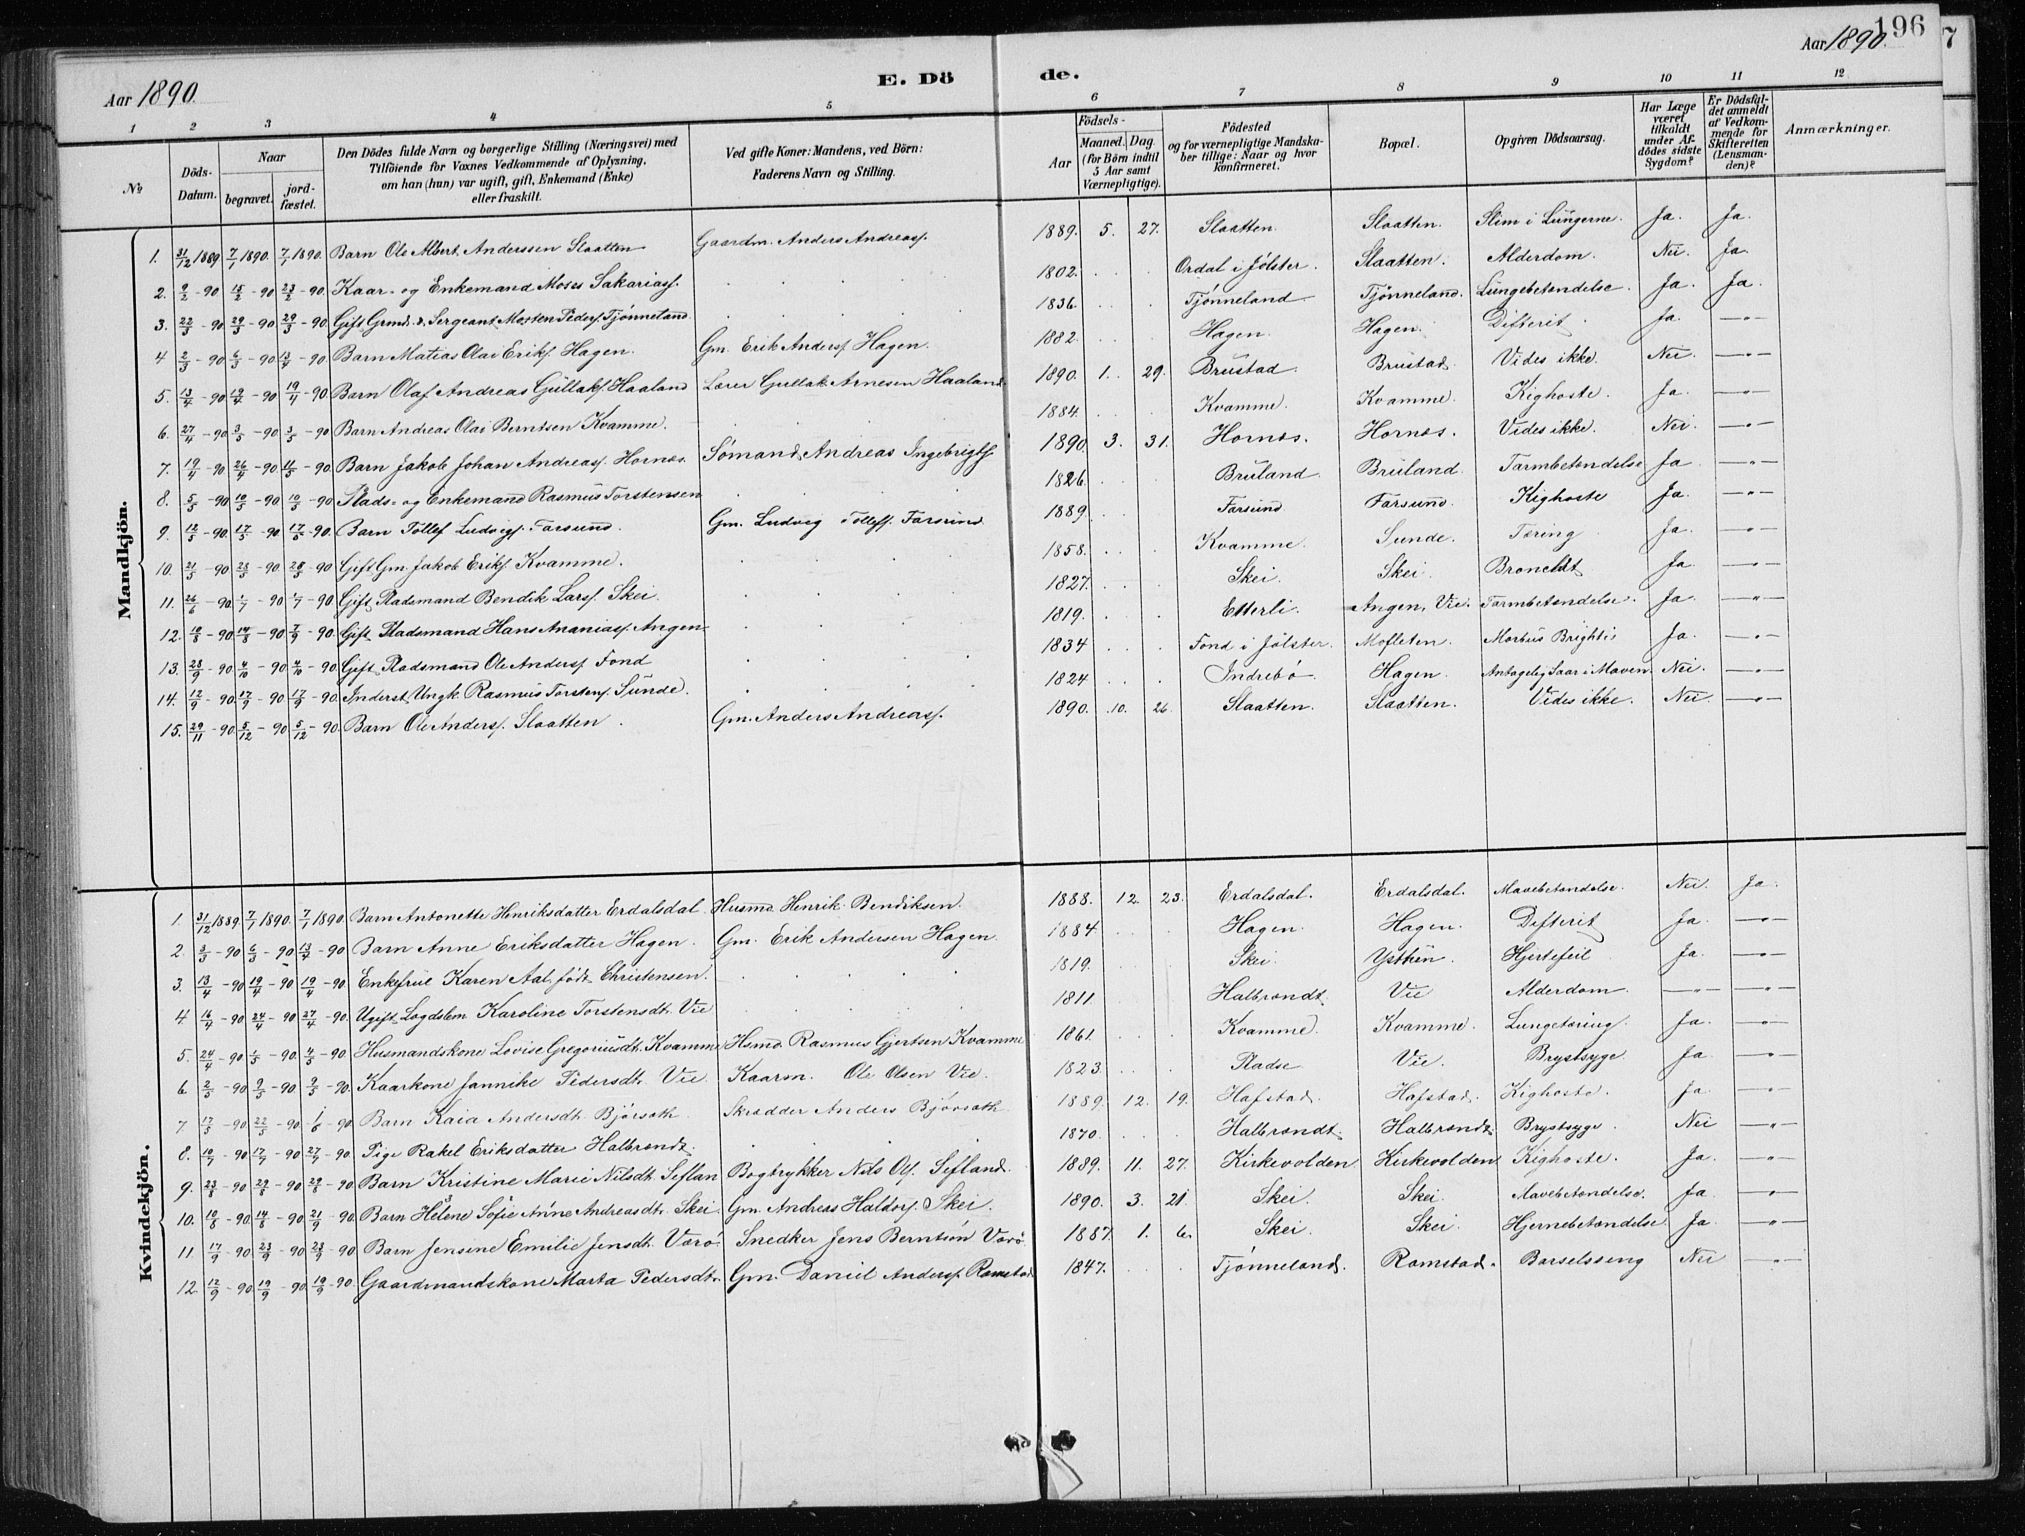 196
7
Aar 1890.
E. Dö
de.
Aar 1890.
1 2 3 4 5 6 7 8 9 10 11 12
№
Döds-Datum.
Naar
begravet.
jord-fæstet.
Den Dödes fulde Navn og borgerlige Stilling (Næringsvei) med
Tilföiende for Voxnes Vedkommende af Oplysning,
om han (hun) var ugift, gift, Enkemand (Enke)
eller fraskilt.
Ved gifte Koner: Mandens, ved Börn:
Faderens Navn og Stilling.
Födsels-
Aar
Maaned. Dag
(for Börn indtil
5 Aar samt
Værnepligtige).
Födested
og for værnepligtige Mandska-
ber tillige: Naar og hvor
konfirmeret.
Bopæl.
Opgiven Dödsaarsag.
Har Læge
været
tilkaldt
under Af-
dödes sidste
Sygdom?
Er Dödsfal-
det anmeldt
af Vedkom-
mende for
Skifteretten
(Lensman-
den)?
Anmærkninger.
Mandkjön.
1. 31/12 1889 7/1 1890. 7/1 1890. Barn Ole Albert Anderssen Slaatten Gaardm. Anders Andreass. 1889. 5. 27. Slaatten. Slaatten. Slim i Lungerne. Ja. Ja.
2. 9/2 - 90 15/2 - 90 23/2 - 90. Kaar- og Enkemand Moses Sakariass. 1802. Ordal i Jølster. Slaatten. Alderdom. Nei. Ja.
3. 22/3 - 90 29/3 - 90 29/3 - 90. Gift Grmd. & Sergeant Morten Peders. Tjønneland 1836. Tjønneland Tjønneland. Lungebetændelse. Ja. Ja.
4 2/3 - 90 6/3 - 90 13/4 - 90 Barn Matias Olai Eriks. Hagen. Gm. Erik Anders. Hagen. 1882. Hagen. Hagen. Difterit. Ja. —"—
5. 13/4 - 90 19/4 - 90 19/4 - 90. Barn Olaf Andreas Gullaks. Haaland Lærer Gullak Arnesen Haaland. 1890. 1. 29. Brustad. Brustad. Vides ikke. Nei. —"—
6. 27/4 - 90 3/5 - 90 3/5 - 90 Barn Andreas Olai Berntsen Kvamme. 1884. Kvamme. Kvamme. Kighoste. Ja. —"—
7. 19/4 - 90 26/4 - 90 11/5 - 90. Barn Jakob Johan Andreass. Hornæs. Sømand Andreas Ingebrigts. 1890. 3. 31. Hornæs. Hornæs. Vides ikke. Nei. —"—
8. 5/5 - 90 10/5 - 90 10/5 - 90 Plads- og Enkemand Rasmus Torstensen 1826. Bruland. Bruland. Tarmbetændelse Ja —"—
9. 12/5 - 90. 17/5 - 90. 17/5 - 90. Barn Tollef Ludvigs. Farsund. Gm. Ludvig Tollefs. Farsund. 1889 Farsund Farsund. Kighoste Ja. —"—
10. 21/5 - 90 28/5 - 90 28/5 - 90 Gift Gm. Jakob Eriks. Kvamme. 1858. Kvamme. Sunde. Tæring Ja. —"—
11. 26/6 - 90. 1/7 - 90 1/7 - 90. Gift Pladsmand Bendik Lars. Skei. 1827. Skei. Skei. Ja. —"—
12. 10/8 - 90. 14/8 - 90 7/9 - 90. Gift Pladsmand Hans Ananiass. Angen 1819. Etterli. Angen, Vie. Tarmbetændelse. Ja. —"—
13. 28/9 - 90 4/10 - 90 4/10 - 90 Gift Pladsmand Ole Anders. Fond 1834 Fond i Jølster. Mofleten. Morbus Brightii Ja. —"—
14. 12/9 - 90. 17/9 - 90 17/9 - 90. Inderst Ungk. Rasmus Torstens. Sunde. 1824 Indrebö Hagen. Antagelig Saar i Maven Nei. —"—
15. 29/11 - 90. 5/12 - 90 5/12 - 90. Barn Ole Anders. Slaatten. Gm. Anders Andreass. 1890. 10. 26. Slaatten. Slaatten. Vides ikke. Nei. —"—
Kvindekjön.
1. 31/12 1889. 7/1 1890. 7/1 1890. Barn Antonette Henriksdatter Erdalsdal. Husmd. Henrik Bendiksen. 1888. 12. 23. Erdalsdal. Erdalsdal. Mavebetændelse. Nei. Ja.
2. 3/3 - 90 6/3 - 90 13/4 - 90 Barn Anne Eriksdatter Hagen. Gm. Erik Andersen Hagen. 1884 Hagen. Hagen. Difterit Ja. —"—
3. 13/4 - 90 19/4 - 90 19/4 - 90 Enkefrue Karen Aal, født Christensen. 1819. Skei. Hjertefeil Ja. —"—
4. 16/4 - 90 24/4 - 90 27/4 - 90. Ugift Lægdslem Karoline Torstensdt. Vie 1811. Halbrændt. Vie Alderdom. —"— —"—
5. 24/4 - 90 1/5 - 90 4/5 - 90. Husmandskone Lovise Gregoriusdt. Kvamme Hsmd. Rasmus Gjertsen Kvamme 1861. Kvamme. Kvamme. Lungetæring. Ja. —"—
6 2/5 - 90 9/5 - 90. 9/5 - 90. Kaarkone Jannike Pedersdt. Vie Kaarm. Ole Olsen Vie. 1823. Pladse Vie. Brystsyge Ja. —"—
7 17/5 - 90 22/5 - 90 1/6 - 90 Barn Kaia Andersdt. Bjørsath. Skrædder Anders Bjørsath. 1889. 12. 19. Hafstad. Hafstad. Kighoste. Ja. —"—
8. 10/7 - 90 17/7 - 90 27/7 - 90 Pige Rakel Eriksdatter Halbrændt. 1870. Halbrændt. Halbrændt Brystsyge. Nei —"—
9. 23/8 - 90 29/8 - 90 29/8 - 90. Barn Kristine Marie Nilsdt. Sefland Bogtrykker Nils Ols. Sefland. 1889. 11. 27. Kirkevolden Kirkevolden Kighoste. Ja. —"—
10. 10/8 - 90 14/8 - 90 21/9 - 90. Barn Helene Sofie Anne Andreasdt. Skei. Gm. Andreas Haldors. Skei. 1890. 3. 21. Skei. Skei. Mavebetændelse. Ja —"—
11. 17/9 - 90 23/9 - 90 23/9 - 90 Barn Jensine Emilie Jensdt. Værö Snedker Jens Berntsön Værö 1887. 1. 6. Skei. Skei. Hjernebetændelse Ja. —"—
12. 12/9 - 90. 19/9 - 90. 19/9 - 90. Gaardmandskone Marta Pedersdt. Gm. Daniel Anders. Ramstad 1847. Tjønneland. Ramstad. Barselsseng Nei —"—